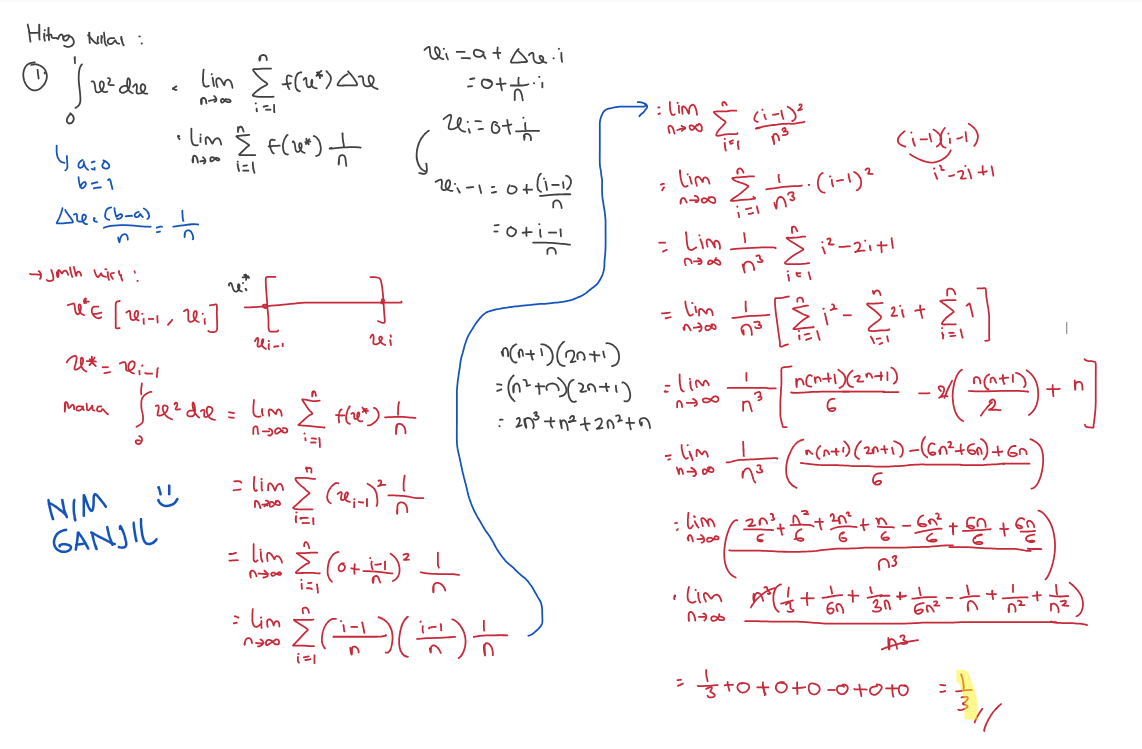 Hitung Nilai :
① ∫₀¹ x² dx = lim n→∞ Σ i=1 n f(x*) Δx
= lim n→∞ Σ i=1 n f(x*) 1/n
↳ a = 0
b = 1
Δx = (b-a)/n = 1/n
→ Jmlh kiri :
x* ∈ [xi-1, xi]
x*
xi-1 xi
x* = xi-1
Maka ∫₀¹ x² dx = lim n→∞ Σ i=1 n f(x*) 1/n
= lim n→∞ Σ i=1 n (xi-1)² 1/n
= lim n→∞ Σ i=1 n (0 + i-1/n)² 1/n
= lim n→∞ Σ i=1 n (i-1/n)(i-1/n) 1/n
NIM
GANJIL
xi = a + Δx . i
= 0 + 1/n . i
xi = 0 + i/n
xi-1 = 0 + (i-1)/n
= 0 + i-1/n
n(n+1)(2n+1)
= (n²+n)(2n+1)
= 2n³ + n² + 2n² + n
= lim n→∞ Σ i=1 n (i-1)²/n³
(i-1)(i-1)
i² - 2i + 1
= lim n→∞ Σ i=1 n 1/n³ . (i-1)²
= lim n→∞ 1/n³ Σ i=1 n i² - 2i + 1
= lim n→∞ 1/n³ [Σ i=1 n i² - Σ i=1 n 2i + Σ i=1 n 1]
= lim n→∞ 1/n³ [n(n+1)(2n+1)/6 - 2(n(n+1)/2) + n]
= lim n→∞ 1/n³ (n(n+1)(2n+1) - (6n²+6n) + 6n/6)
= lim n→∞ (2n³/6 + n²/6 + 2n²/6 + n/6 - 6n²/6 + 6n/6 + 6n/6)/n³
= lim n→∞ n³(1/3 + 1/6n + 1/3n + 1/6n² - 1/n + 1/n² + 1/n²)/n³
= 1/3 + 0 + 0 + 0 - 0 + 0 + 0 = 1/3 //